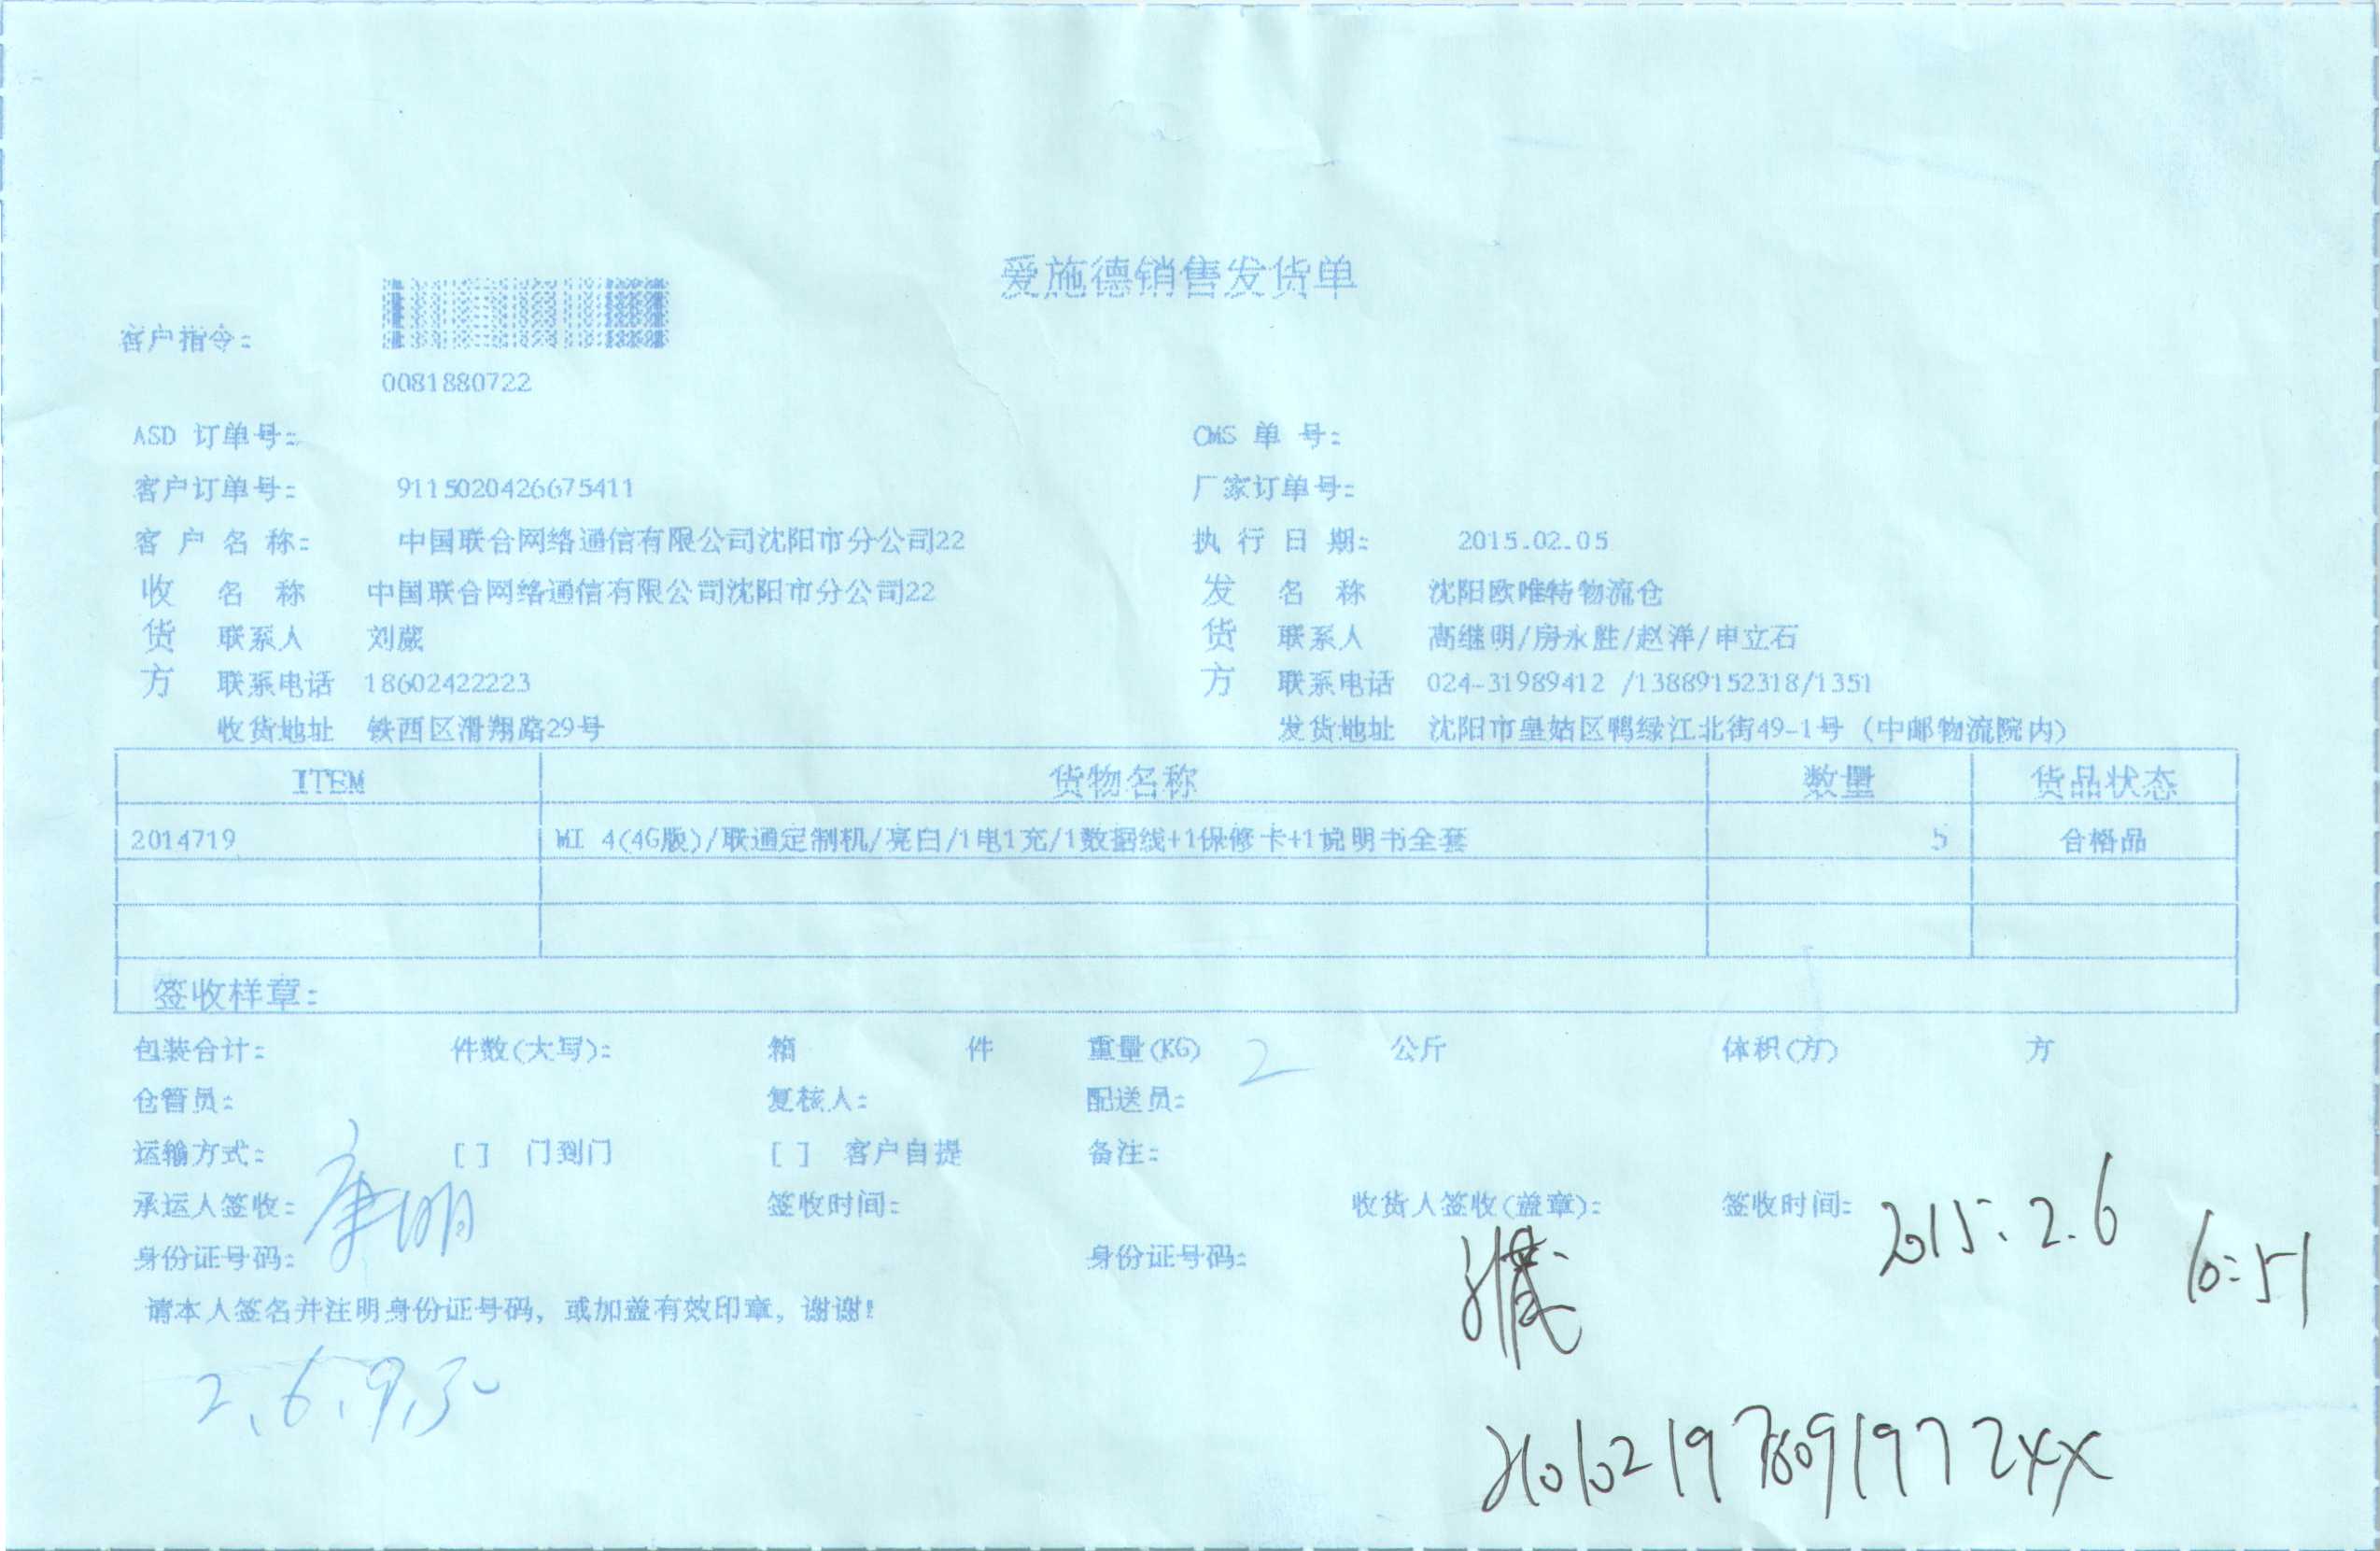 爱施德销售发货单
客户指令:
0081880722
ASD 订单号: CMS 单 号:
客户订单号: 9115020426675411 厂家订单号:
客 户 名 称: 中国联合网络通信有限公司沈阳市分公司22 执 行 日 期: 2015.02.05
收 名 称 中国联合网络通信有限公司沈阳市分公司22 发 名 称 沈阳欧唯特物流仓
货 联系人 刘葳 货 联系人 高继明/房永胜/赵洋/申立石
方 联系电话 18602422223 方 联系电话 024-31989412 /13889152318/1351
收货地址 铁西区滑翔路29号 发货地址 沈阳市皇姑区鸭绿江北街49-1号 (中邮物流院内)
ITEM 货物名称 数量 货品状态
2014719 MI 4(4G版)/联通定制机/亮白/1电1充/1数据线+1保修卡+1说明书全套 5 合格品
签收样章:
包装合计: 件数(大写): 箱 件 重量(KG) 2 公斤 体积(方) 方
仓管员: 复核人: 配送员:
运输方式: [ ] 门到门 [ ] 客户自提 备注:
承运人签收: 康明 签收时间: 收货人签收(盖章): 签收时间: 2015.2.6
身份证号码: 身份证号码: 16:51
请本人签名并注明身份证号码, 或加盖有效印章, 谢谢!
2.6.9.30